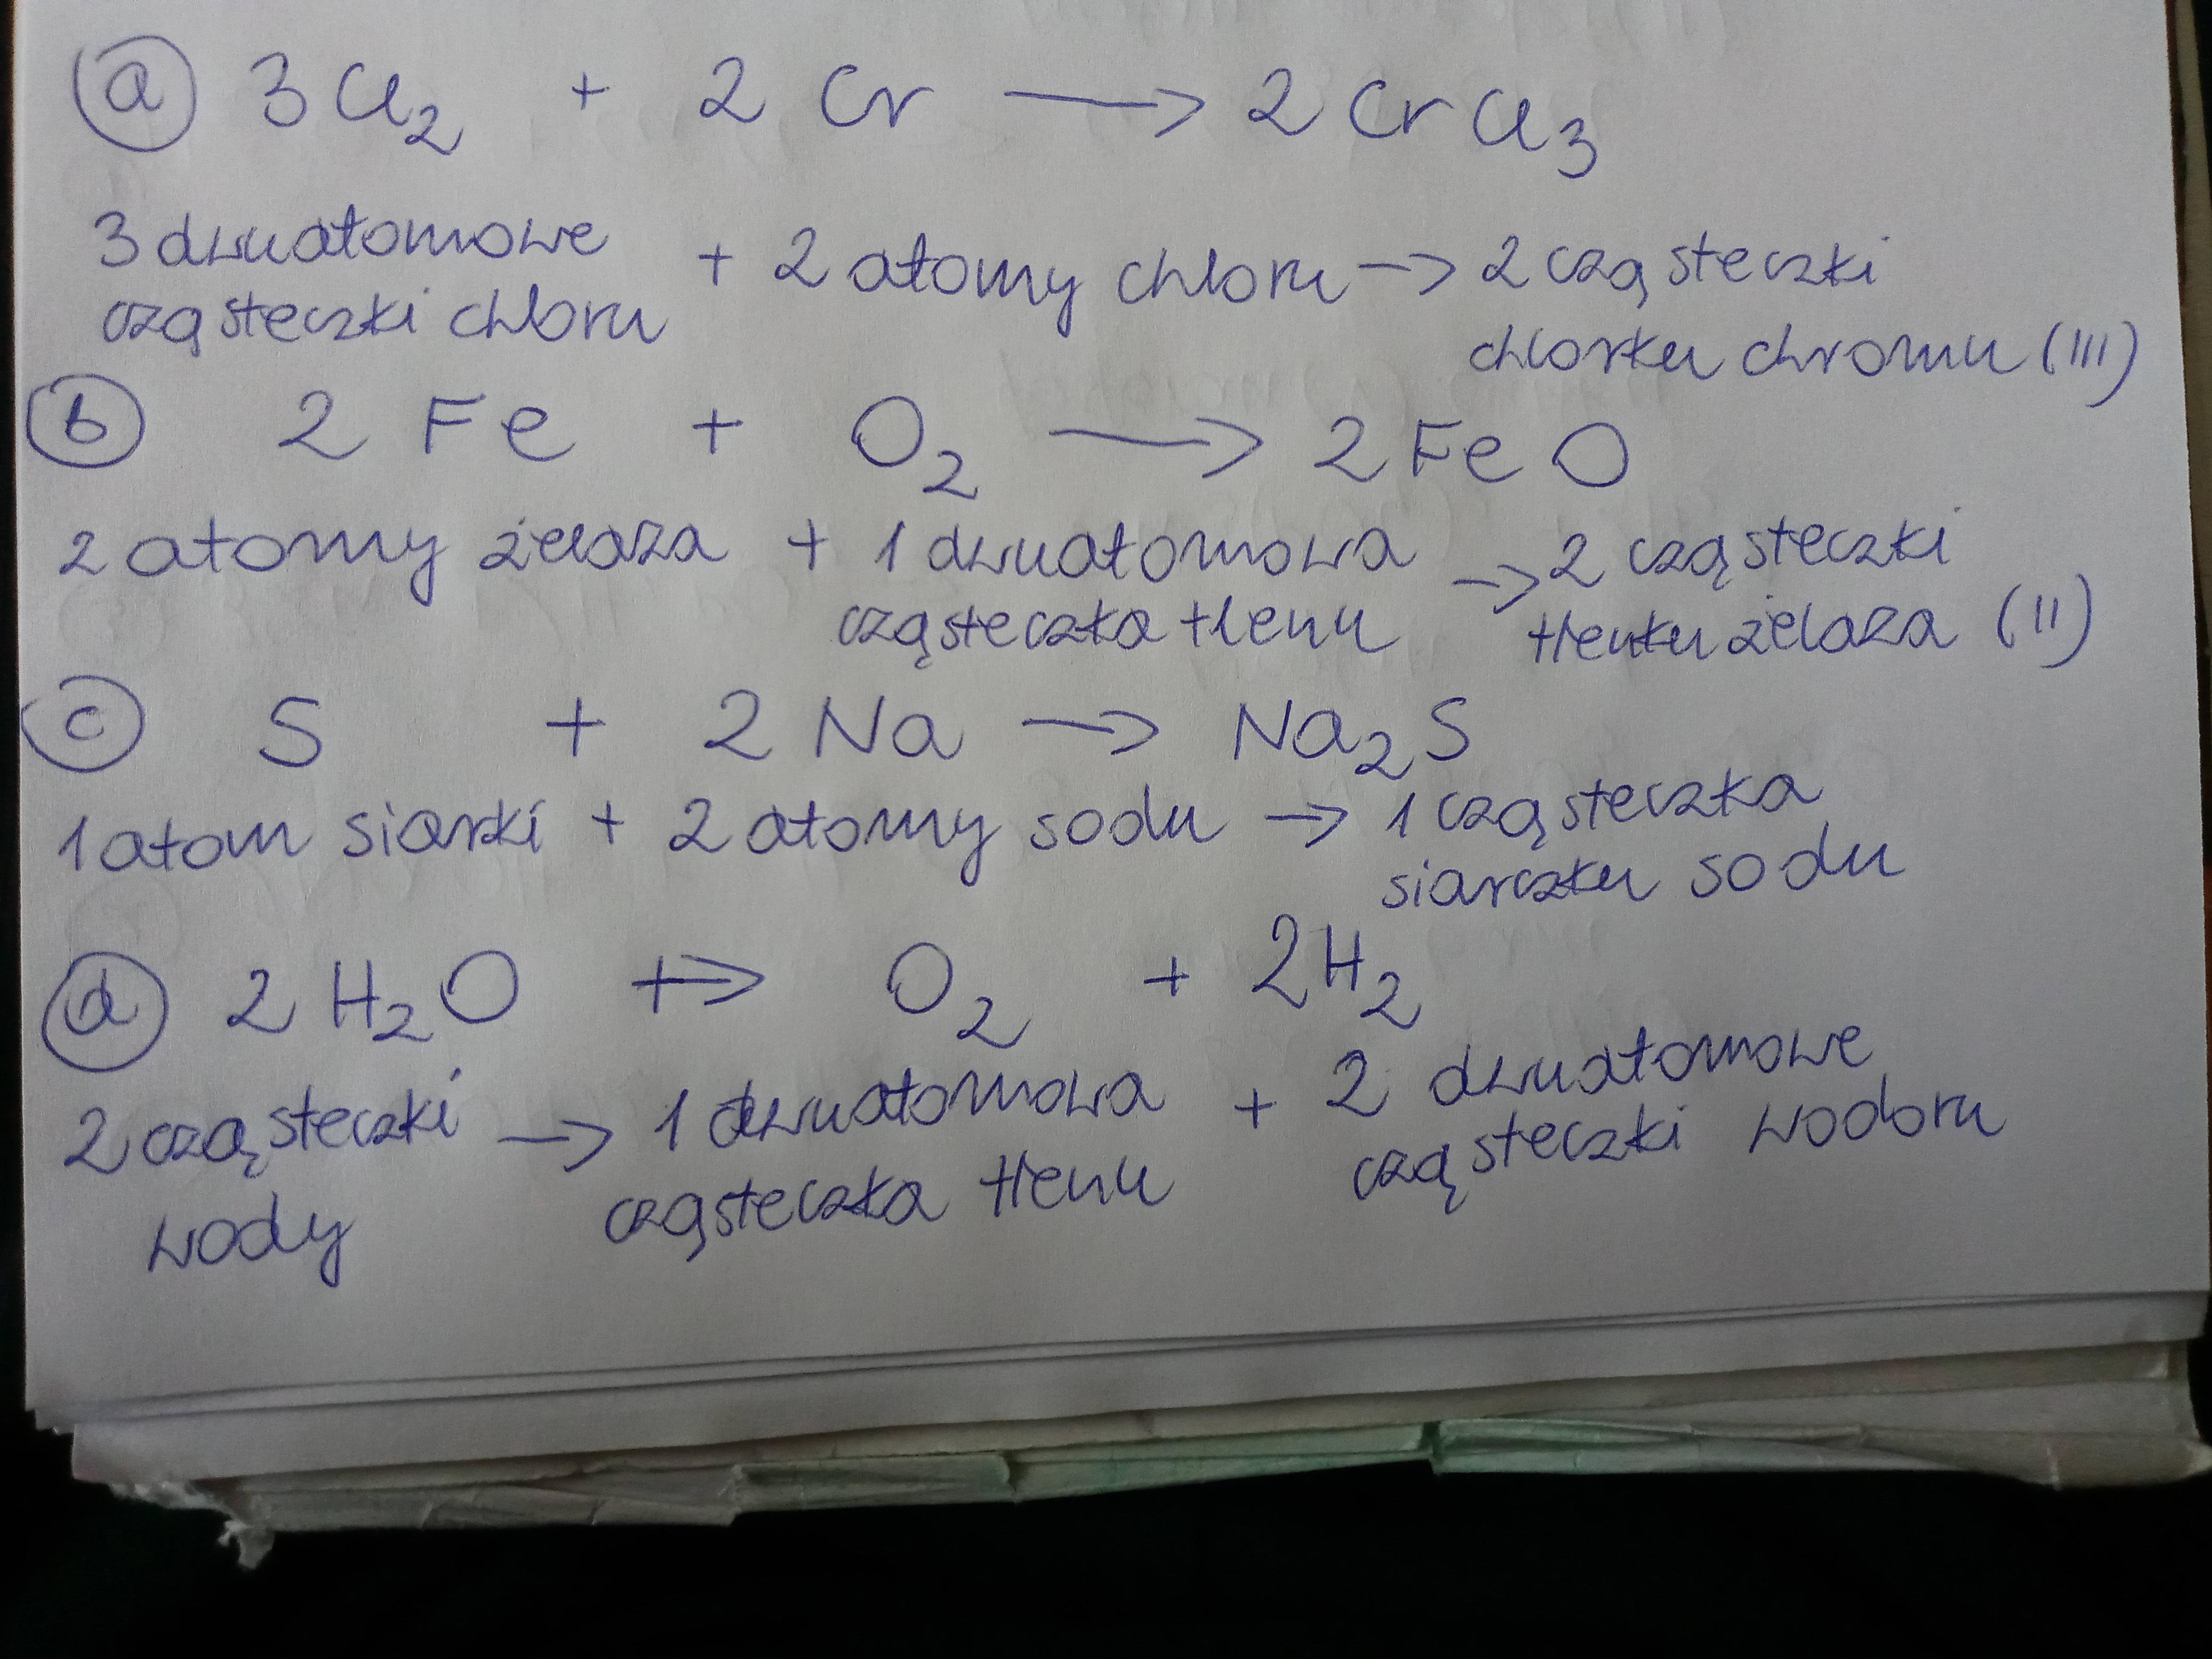 a 3Cl₂ + 2 Cr → 2 CrCl₃
3 dwuatomowe cząsteczki chloru + 2 atomy chloru → 2 cząsteczki chlorku chromu (III)
b 2 Fe + O₂ → 2 FeO
2 atomy żelaza + 1 dwuatomowa cząsteczka tlenu → 2 cząsteczki tlenku żelaza (II)
c S + 2 Na → Na₂S
1 atom siarki + 2 atomy sodu → 1 cząsteczka siarczku sodu
d 2 H₂O → O₂ + 2H₂
2 cząsteczki wody → 1 dwuatomowa cząsteczka tlenu + 2 dwuatomowe cząsteczki wodoru